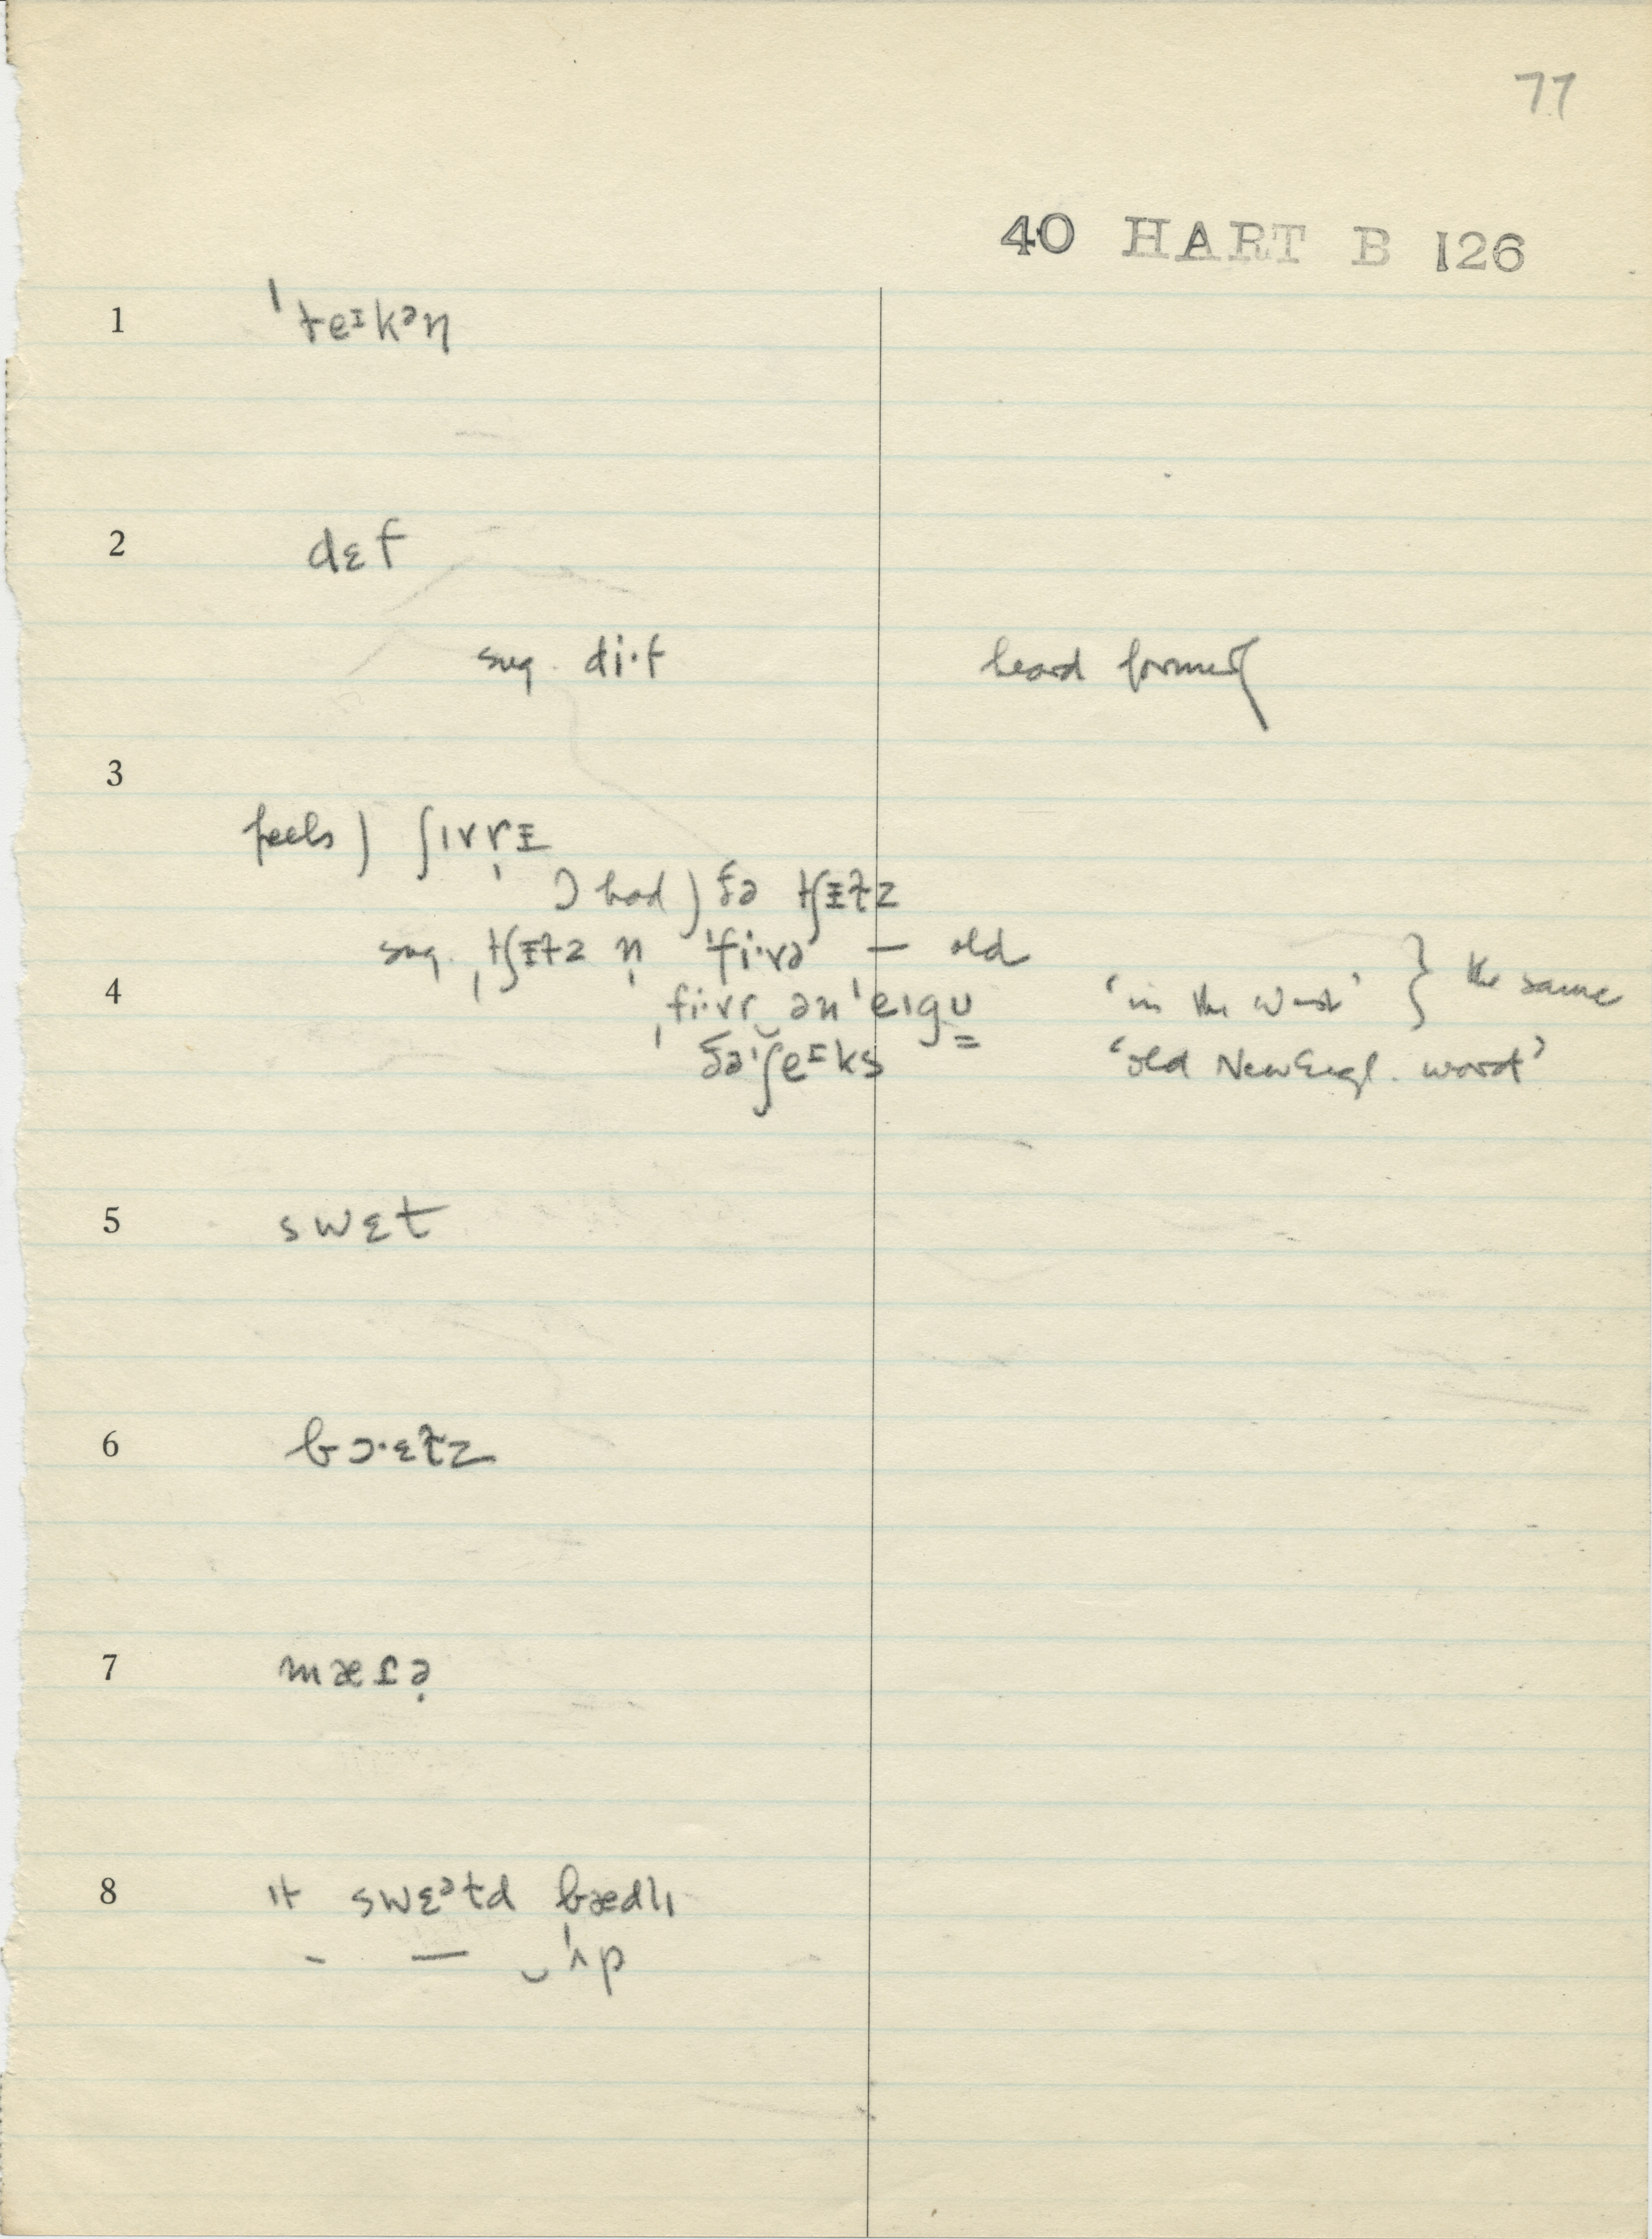 77
40 HART B 126
1 ˈteᶦkᵊn
2 dɛf
sug. di·f heard formerly
3
feels) ʃɪvrɪ
I had) ðə tʃɪɫz
sug. ˌtʃɪlz n̩ ˈfi·və — old
4 ˌfi·vr‿ən ˈeɪgu 'in the West' } the same
ðə ˈʃeᶦks 'old New Engl. word'
5 swɛt
6 bɔ·ɛɫz
7 mæɾə
8 ɪt swɛᵊtd bædlɪ
- — ‿ˈʌp